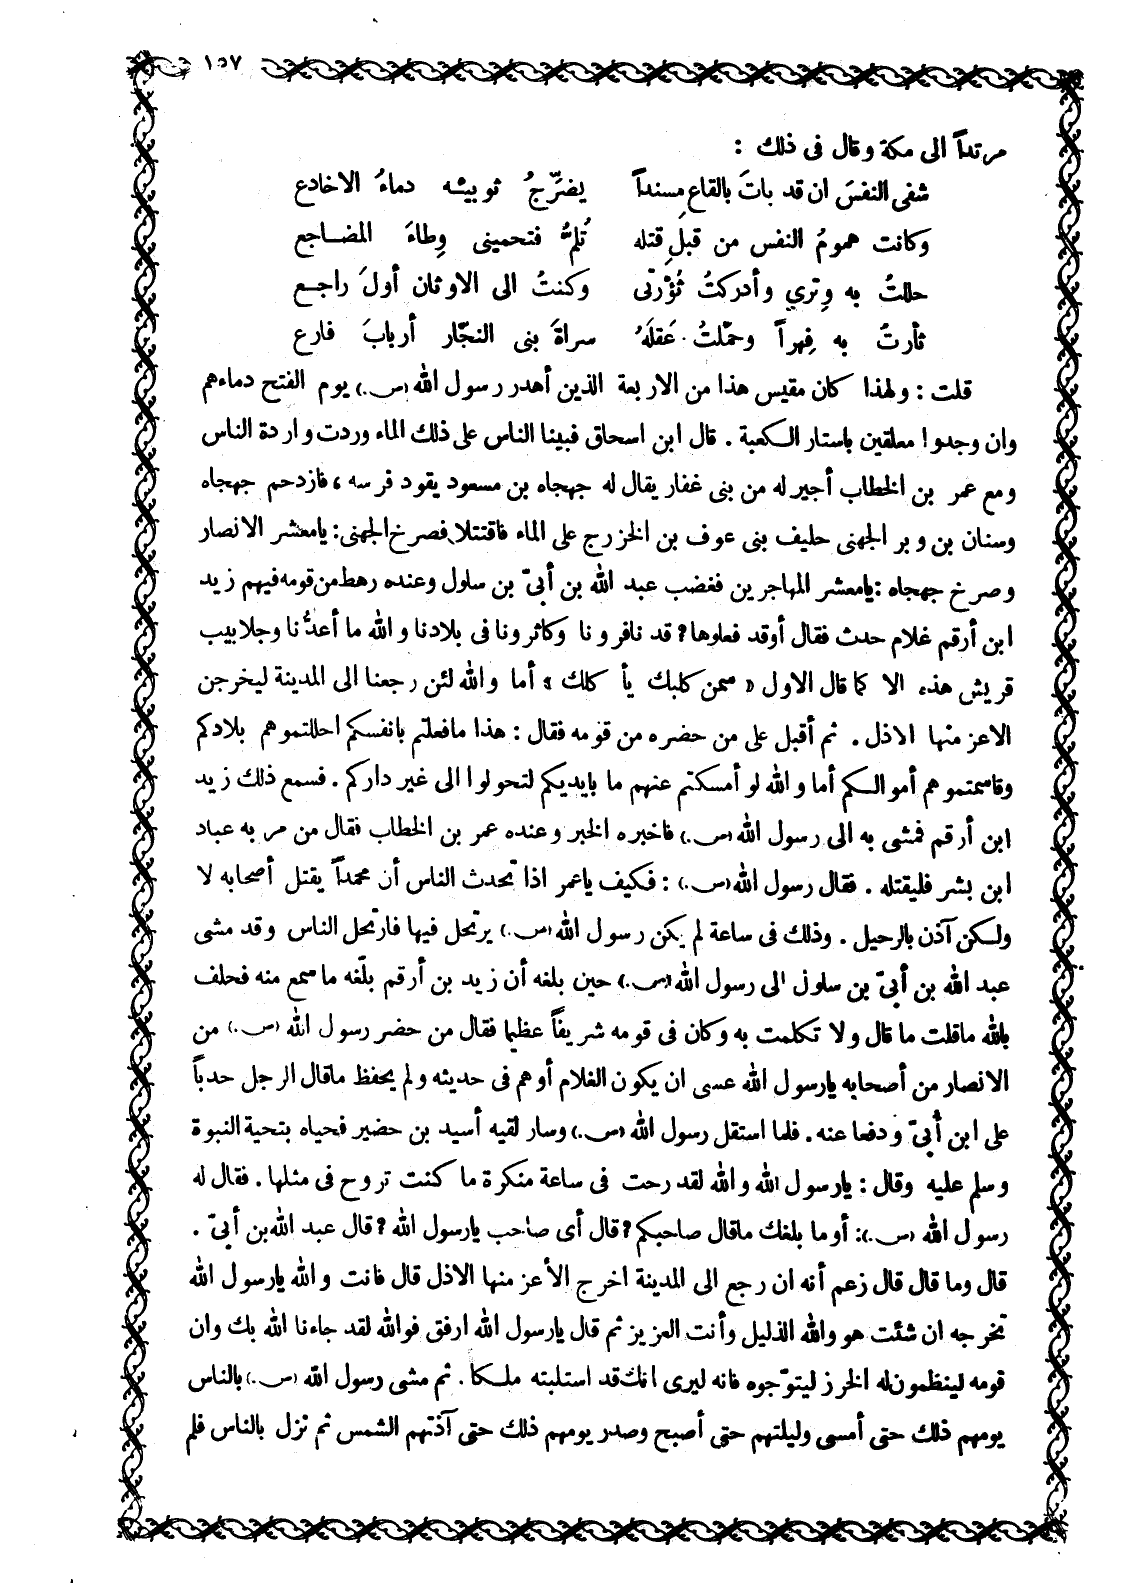 ١٥٧
مرتداً الى مكة وقال فى ذلك :
شفى النفسَ ان قد باتَ بالقاعِ مسنداً يضرِّجُ ثوبيه دماءُ الاخادع
وكانت همومُ النفس من قبلِ قتله تُلمُّ فتحمينى وِطاءَ المضاجع
حللتُ به وِتري وأدركتُ ثُؤْرتى وكنتُ الى الاوثان أولَ راجع
ثأرتُ به فِهراً وحمّلتُ عَقلَهُ سراةَ بنى النجّار أربابَ فارع
قلت : ولهذا كان مقيس هذا من الاربعة الذين أهدر رسول الله (ص.) يوم الفتح دماءهم
وان وجدوا معلقين باستار الكعبة . قال ابن اسحاق فبينا الناس على ذلك الماء وردت واردة الناس
ومع عمر بن الخطاب أجير له من بنى غفار يقال له جهجاه بن مسعود يقود فرسه ، فازدحم جهجاه
وسنان بن وبر الجهنى حليف بنى عوف بن الخزرج على الماء فاقتتلا فصرخ الجهنى: يامعشر الانصار
وصرخ جهجاه : يامعشر المهاجرين فغضب عبد الله بن أبىّ بن سلول وعنده رهط من قومه فيهم زيد
ابن أرقم غلام حدث فقال أوقد فعلوها ? قد نافرونا وكاثرونا فى بلادنا والله ما أعدُّنا وجلابيب
قريش هذه الا كما قال الاول « سمن كلبك يأكلك » أما والله لئن رجعنا الى المدينة ليخرجن
الاعز منها الاذل . ثم أقبل على من حضره من قومه فقال : هذا مافعلتم بانفسكم احللتموهم بلادكم
وقاسمتموهم أموالكم أما والله لو أمسكتم عنهم ما بايديكم لتحولوا الى غير داركم . فسمع ذلك زيد
ابن أرقم فمشى به الى رسول الله (ص.) فاخبره الخبر وعنده عمر بن الخطاب فقال من مر به عباد
ابن بشر فليقتله . فقال رسول الله (ص.) : فكيف ياعمر اذا تحدث الناس أن محمداً يقتل أصحابه لا
ولكن آذن بالرحيل . وذلك فى ساعة لم يكن رسول الله (ص.) يرتحل فيها فارتحل الناس وقد مشى
عبد الله بن أبىّ بن سلول الى رسول الله (ص.) حين بلغه أن زيد بن أرقم بلّغه ماسمع منه فحلف
بالله ماقلت ما قال ولا تكلمت به وكان فى قومه شريفاً عظيما فقال من حضر رسول الله (ص.) من
الانصار من أصحابه يارسول الله عسى ان يكون الغلام أوهم فى حديثه ولم يحفظ ماقال الرجل حدباً
على ابن أُبىّ ودفعا عنه . فلما استقل رسول الله (ص.) وسار لقيه أسيد بن حضير فحياه بتحية النبوة
وسلم عليه وقال : يارسول الله والله لقد رحت فى ساعة منكرة ما كنت تروح فى مثلها . فقال له
رسول الله (ص.) : أوما بلغك ماقال صاحبكم ? قال أى صاحب يارسول الله ? قال عبد الله بن أبىّ .
قال وما قال قال زعم أنه ان رجع الى المدينة اخرج الأعز منها الاذل قال فانت والله يارسول الله
تخرجه ان شئت هو والله الذليل وأنت العزيز ثم قال يارسول الله ارفق فوالله لقد جاءنا الله بك وان
قومه لينظمون له الخرز ليتوّجوه فانه ليرى انك قد استلبته ملكا . ثم مشى رسول الله (ص.) بالناس
يومهم ذلك حتى أمسى وليلتهم حتى أصبح وصدر يومهم ذلك حتى آذتهم الشمس ثم نزل بالناس فلم